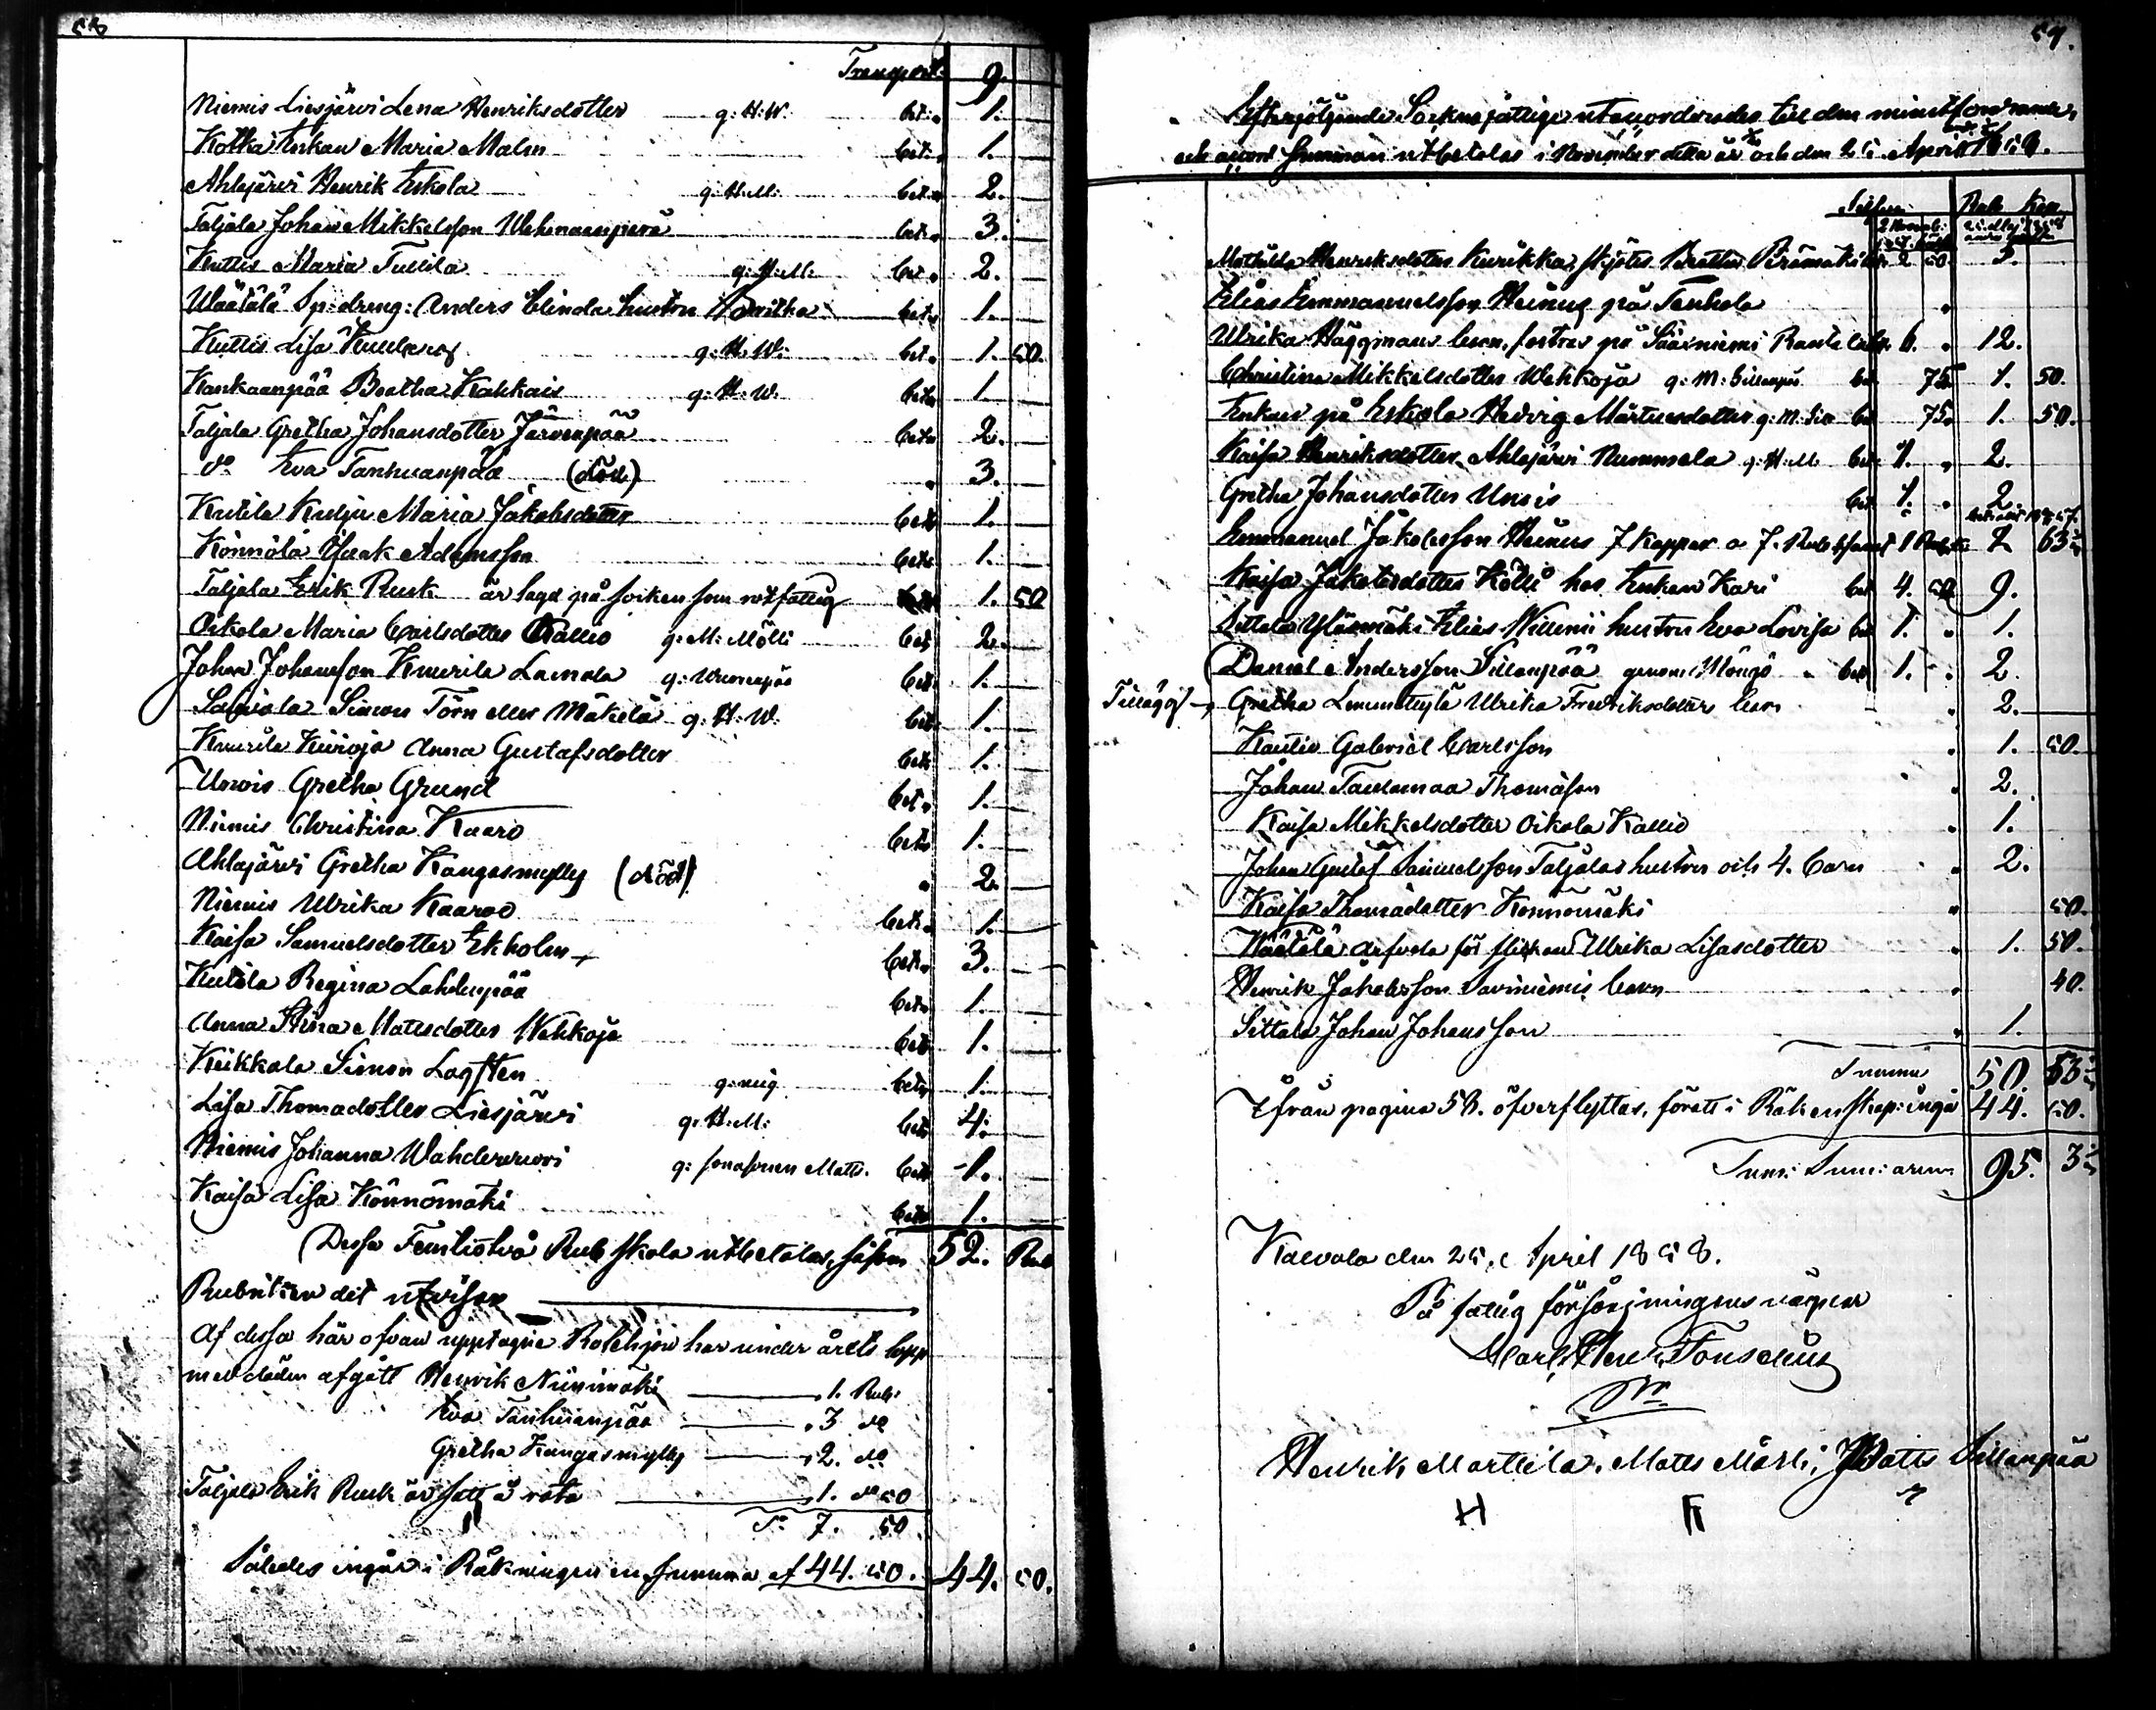 58
Transport. 9.
Niemis Liesjärvi Lena Henriksdotter g: H: W. bet. 1.
Kotka Enkan Maria Malm bet. 1.
Ahlajärvi Henrik Eskola g: H: M: bet. 2.
Taljala Johan Mikkelsson Wehmaanperä bet. 3.
Kuttis Maria Tullila g: H: M: bet. 2.
Wäätälä Sp: dreng: Anders Elinda hustru bet. 1.
Kuttis Lisa g: H: W: bet. 1. 50.
Kankaanpää Beatha Kakkais g: H: W. bet. 1.
Taljala Gretha Johansdotter Järvenpää bet. 2.
do Eva Tanhuanpää (död) 3.
Kutila Kulju Maria Jakobsdotter bet. 1.
Könnölä Isaak Adamsson bet. 1.
Taljala Erik Rusk är lagd på socken som rotfattig 1. 50
Oikola Maria Carlsdotter Kallio g: M: Mölli bet. 2.
Johan Johansson Knurila Lamala g: bet. 1.
Simon Törn eller Mäkelä g: H: W. bet. 1.
Knurila Anna Gustafsdotter bet. 1.
Unois Gretha Grund bet. 1.
Niemis Christina Kaaro bet. 1.
Ahlajärvi Gretha Kangasmylly (död) 2.
Niemis Ulrika Kaaro bet. 1.
Kaisa Samuelsdotter Ekholm bet. 3.
Kutila Regina Lahdenpää bet. 1.
Anna Stina Mattsdotter Wahkoja bet. 1.
Keikkala Simon Lagsten g: mig bet. 1.
Lisa Thomadotter Liesjärvi g: H: M: bet. 4.
Niemis Johanna Wahderwuori g: Matts. bet. 1.
Kaisa Lisa Könnömäki bet. 1.
Dessa Femtiotvå Rub skola utbetalas, såsom 52. Rub
Rubriken det utvisar
Af dessa här ofvan upptagne Rotehjon har under årets lopp
med döden afgått Henrik Niinimäki 1. Rub.
Eva Tanhuanpää 3 do
Gretha Kangasmylly 2. do
Taljala Erik Rusk är satt å rote 1. do 50
Sa 7. 50
Således ingår i Räkningen en summa af 44. 50. 44. 50.
59.
Efterföljande Sockne fattige utanordnades till dem
och summan utbetalas i November detta år och den 25 April 1858.
Rub Kop
Mathilda Henriksdotter Kurikka, Pirämäki 2 50.
Elias Emmanuelsson Heinus på Tanhola
Ulrika Häggmans barn, fostras på Sääxniemi Rantala 6. 12.
Christina Mikkelsdotter Wahkoja g: M: Sillanpää bet 75 1. 50.
Enkan på Eskola Hedvig Mårtensdotter g: M: bet 75 1. 50.
Kaisa Henriksdotter Ahlajärvi Nummela g: H: M bet 1. 2.
Gretha Johansdotter Unois bet 1. 2
Emmanuel Jakobsson Heinus 7 kappar
Kaisa Jakobsdotter Kölli hos Enkan Kari bet 4. 50 9.
Sittala Elias Willenii hustru Eva Lovisa bet 1. 1.
Daniel Andersson Sillanpää genom Mångs bet 1. 2.
Tillägg Gretha Ulrika Fredriksdotters barn 2.
Kautio Gabriel Carlsson 1. 50.
Johan Tandamaa Thomasson 2.
Kaisa Mikkelsdotter Oikola Kallio 1.
Johan Gustaf Samuelsson Taljalas hustru och 4. barn 2.
Kaisa Thomadotter Könnömäki 50.
Wäätälä arfvode för flickan Ulrika Lisasdotter 1. 50.
Henrik Jakobsson Sariniemis barn 40.
Sittala Johan Johansson 1.
Summa 50. 53½
Ifrån pagina 58. öfverflyttas, förett i Räkenskap: ingå 44. 50.
Sum: Summarum 95. 3½
Kalvola den 25. April 1858.
På fattig försörjningens vägnar
Carl Henr. Fonselius
Henrik Marttila, Matts Mårli, Matts Sillanpää
H